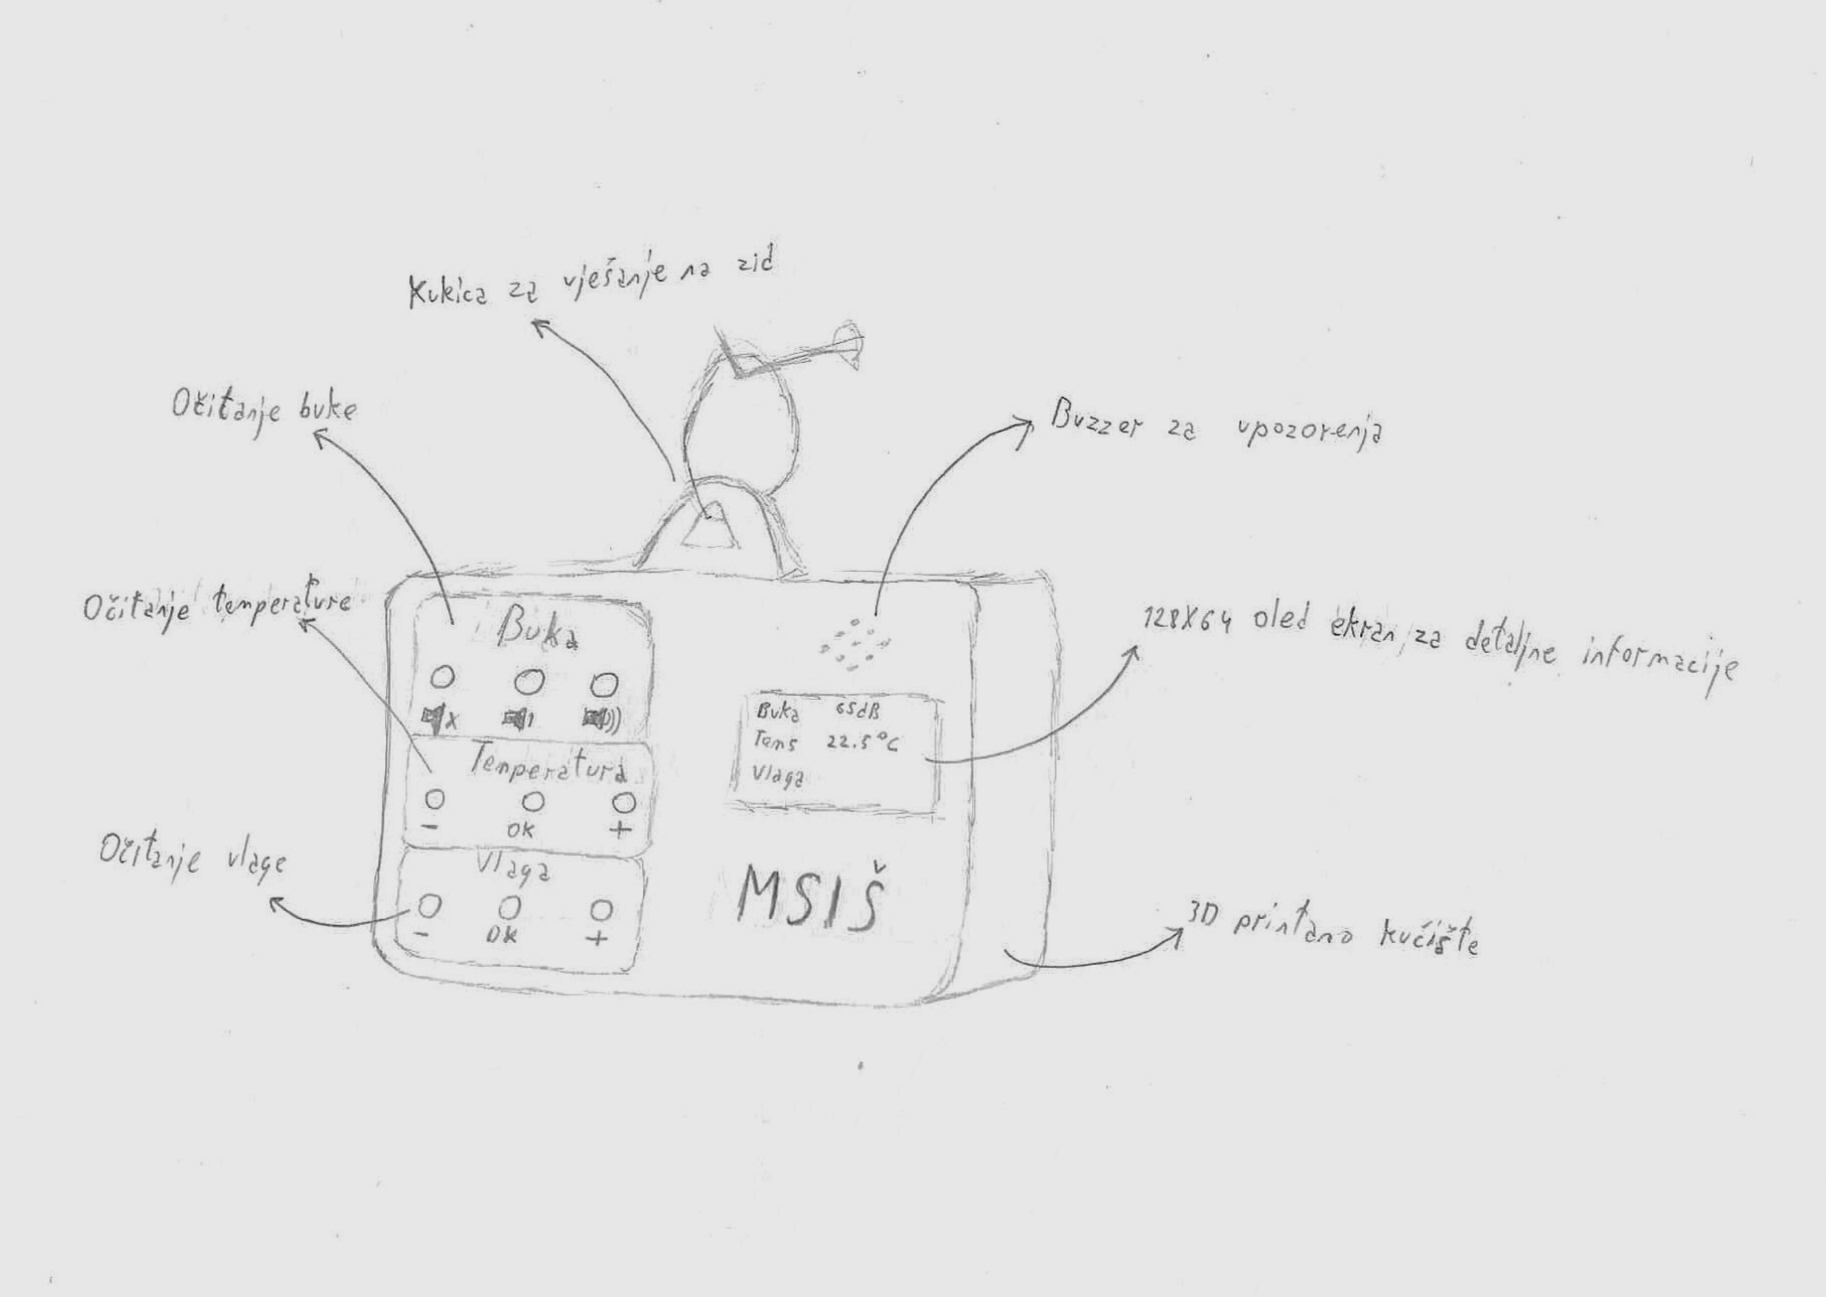 Kukica za vješanje na zid
Očitanje buke
Buzzer za upozorenja
Očitanje temperature
128X64 oled ekran za detaljne informacije
Buka
Buka 65dB
Tems 22.5°C
Vlaga
Temperatura
- OK +
Očitanje vlage
Vlaga
- OK +
MSIŠ
3D printano kučište